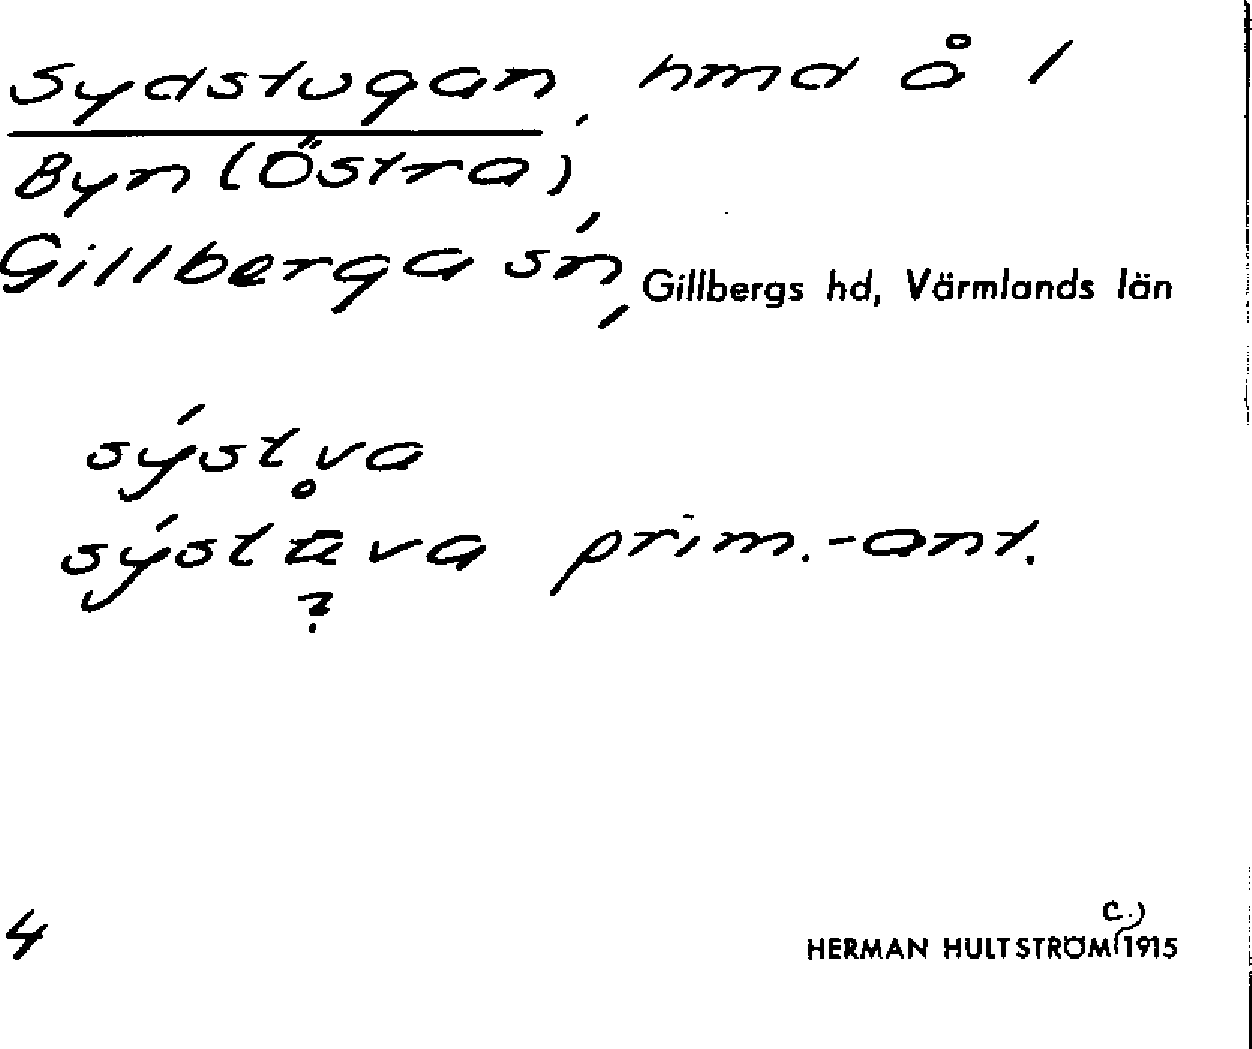 Sydstugan, hmd å 1
Byn (Östra),
Gillberga sn, Gillbergs hd, Värmlands län
sýst̥va
sýst va prim.-ant.
?
4
c.)
HERMAN HULTSTRÖM 1915